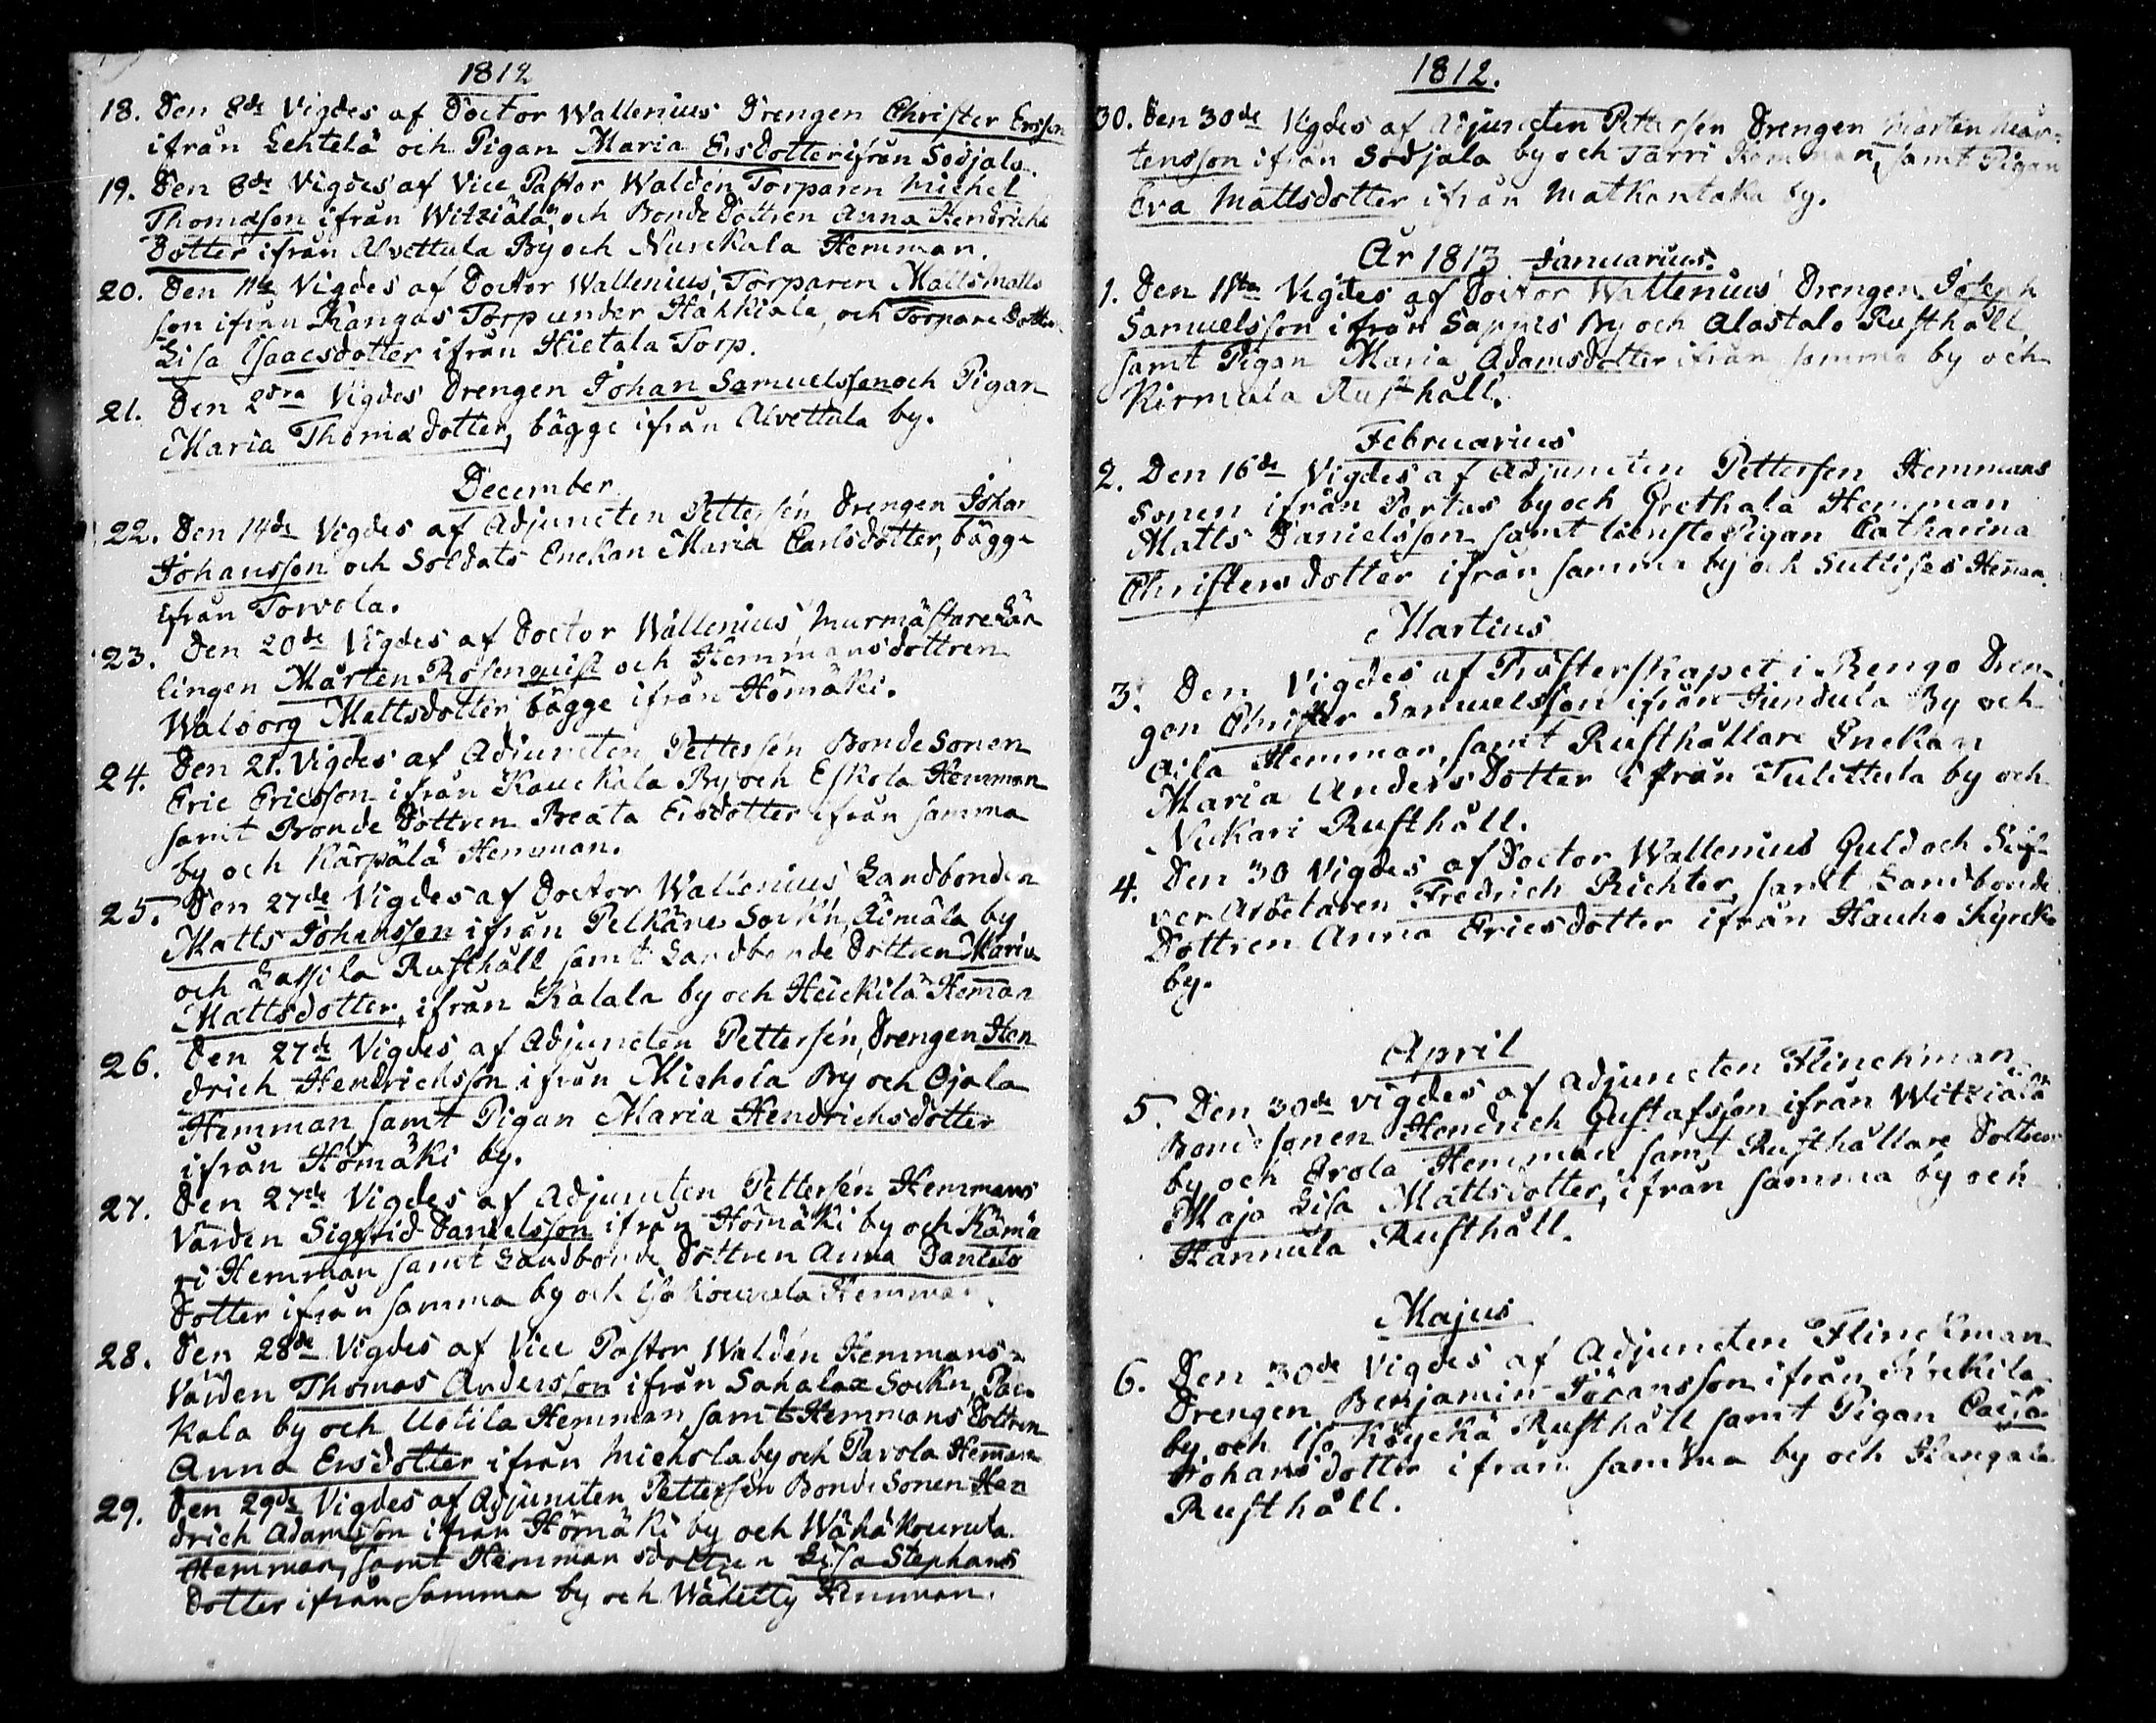 1812
18. Den 8de Vigdes af Doctor Wallenius Drengen Christer Ersson
ifrån Lehtelä och Pigan Maria Ersdotter ifrån Sodjala.
19. Den 8de Vigdes af Vice Pastor Waldén Torparen Michel
Thomasson ifrån Witziälä, och Bonde Dottren Anna Hendrichs
Dotter ifrån Alvettula By och Nurckala Hemman.
20. Den 11te Vigdes af Doctor Wallenius, Torparen Matts Matts
son ifrån Kangas Torp under Hahkiala, och Torpare Dottren
Lisa Isaacsdotter ifrån Hietala Torp.
21. Den 2dra Vigdes Drengen Johan Samuelsson och Pigan
Maria Thomædotter, bägge ifrån Alvettula by.
December
22. Den 14de Vigdes af Adjuncten Pettersén Drengen Johan
Johansson och Soldats Enckan Maria Carlsdotter, bägge
ifrån Torvola.
23. Den 20de Vigdes af Doctor Wallenius, Murmästare Lär
lingen Mårten Rosenquist och Hemmansdottren
Walborg Mattsdotter, bägge ifrån Hömäki.
24. Den 21. Vigdes af Adjuncten Pettersén Bonde Sonen
Eric Ericsson ifrån Kauckala By och Eskola Hemman
samt Bonde Dottren Beata Ersdotter ifrån samma
by och Kärpälä Hemman.
25. Den 27de Vigdes af Doctor Wallenius Landbonden
Matts Johansson ifrån Pelkäne Sockn, Äimälä by
och Lassila Rusthåll samt Landbonde Dottren Maria
Mattsdotter, ifrån Kalala by och Heickilä Hemman
26. Den 27de Vigdes af Adjuncten Pettersén, Drengen Hen
drich Hendrichsson ifrån Michola By och Ojala
Hemman samt Pigan Maria Hendrichsdotter
ifrån Hömäki by.
27. Den 27de Vigdes af Adjuncten Pettersén Hemmans
Värden Sigfrid Danielsson ifrån Hömäki by och Kämä
ri Hemman samt Landbonde Dottren Anna Daniels
Dotter ifrån samma by och Iso Kouvala Hemman.
28. Den 28de Vigdes af Vice Pastor Waldén Hemmans
Värden Thomas Andersson ifrån Sahalax Sockn, Pac
kala by och Uotila Hemman samt Hemmans Dottren
Anna Ersdotter ifrån Michola by och Pavola Hemman
29. Den 29de Vigdes af Adjuncten Pettersén Bonde Sonen Hen
drich Adamsson ifrån Hömäki by och Wähä Kouvala
Hemman, samt Hemmansdottren Lisa Stephans
Dotter ifrån samma by och Wäheity Hemman.
1812.
30. Den 30de Vigdes af Adjuncten Pettersén Drengen Mårten Mår-
tensson ifrån Sodjala by och Tarri Hemman, samt Pigan
Eva Mattsdotter ifrån Matkantaka by.
År 1813 Januarius.
1. Den 11te Vigdes af Doctor Wallenius Drengen Joseph
Samuelsson ifrån Sappes By och Alastalo Rusthåll
samt Pigan Maria Adamsdotter ifrån samma by och
Kirmula Rusthåll.
Februarius
2. Den 16de Vigdes af Adjuncten Pettersén Hemmans
Sonen ifrån Portas by och Grethala Hemman
Matts Danielsson samt tienste Pigan Catharina
Christersdotter ifrån samma by och Suttises Heman.
Martius
3. Den Vigdes af Prästerskapet i Rengo Dren-
gen Christer Samuelsson ifrån Hundula By och
Aila Hemman, samt Rusthållare Enckan
Maria Anders Dotter ifrån Tulettula by och
Nickari Rusthåll.
4. Den 30 Vigdes af Doctor Wallenius Guld och Silf-
ver Arbetaren Fredrich Richter, samt Landbonde
Dottren Anna Ericsdotter ifrån Hauho Kyrcko
by.
April
5. Den 30de vigdes af adjuncten Flinckman
Bondesonen Hendrich Gustafsson ifrån Witziälä
by och Erola Hemman samt Rusthållare Dottren
Maja Lisa Mattsdotter, ifrån samma by och
Hannula Rusthåll.
Majus
6. Den 30de Vigdes af Adjuncten Flinckman
Drengen Benjamin Göransson ifrån
by och Iso Köyckä Rusthåll samt Pigan Caisa
Johansdotter ifrån samma by och
Rusthåll.